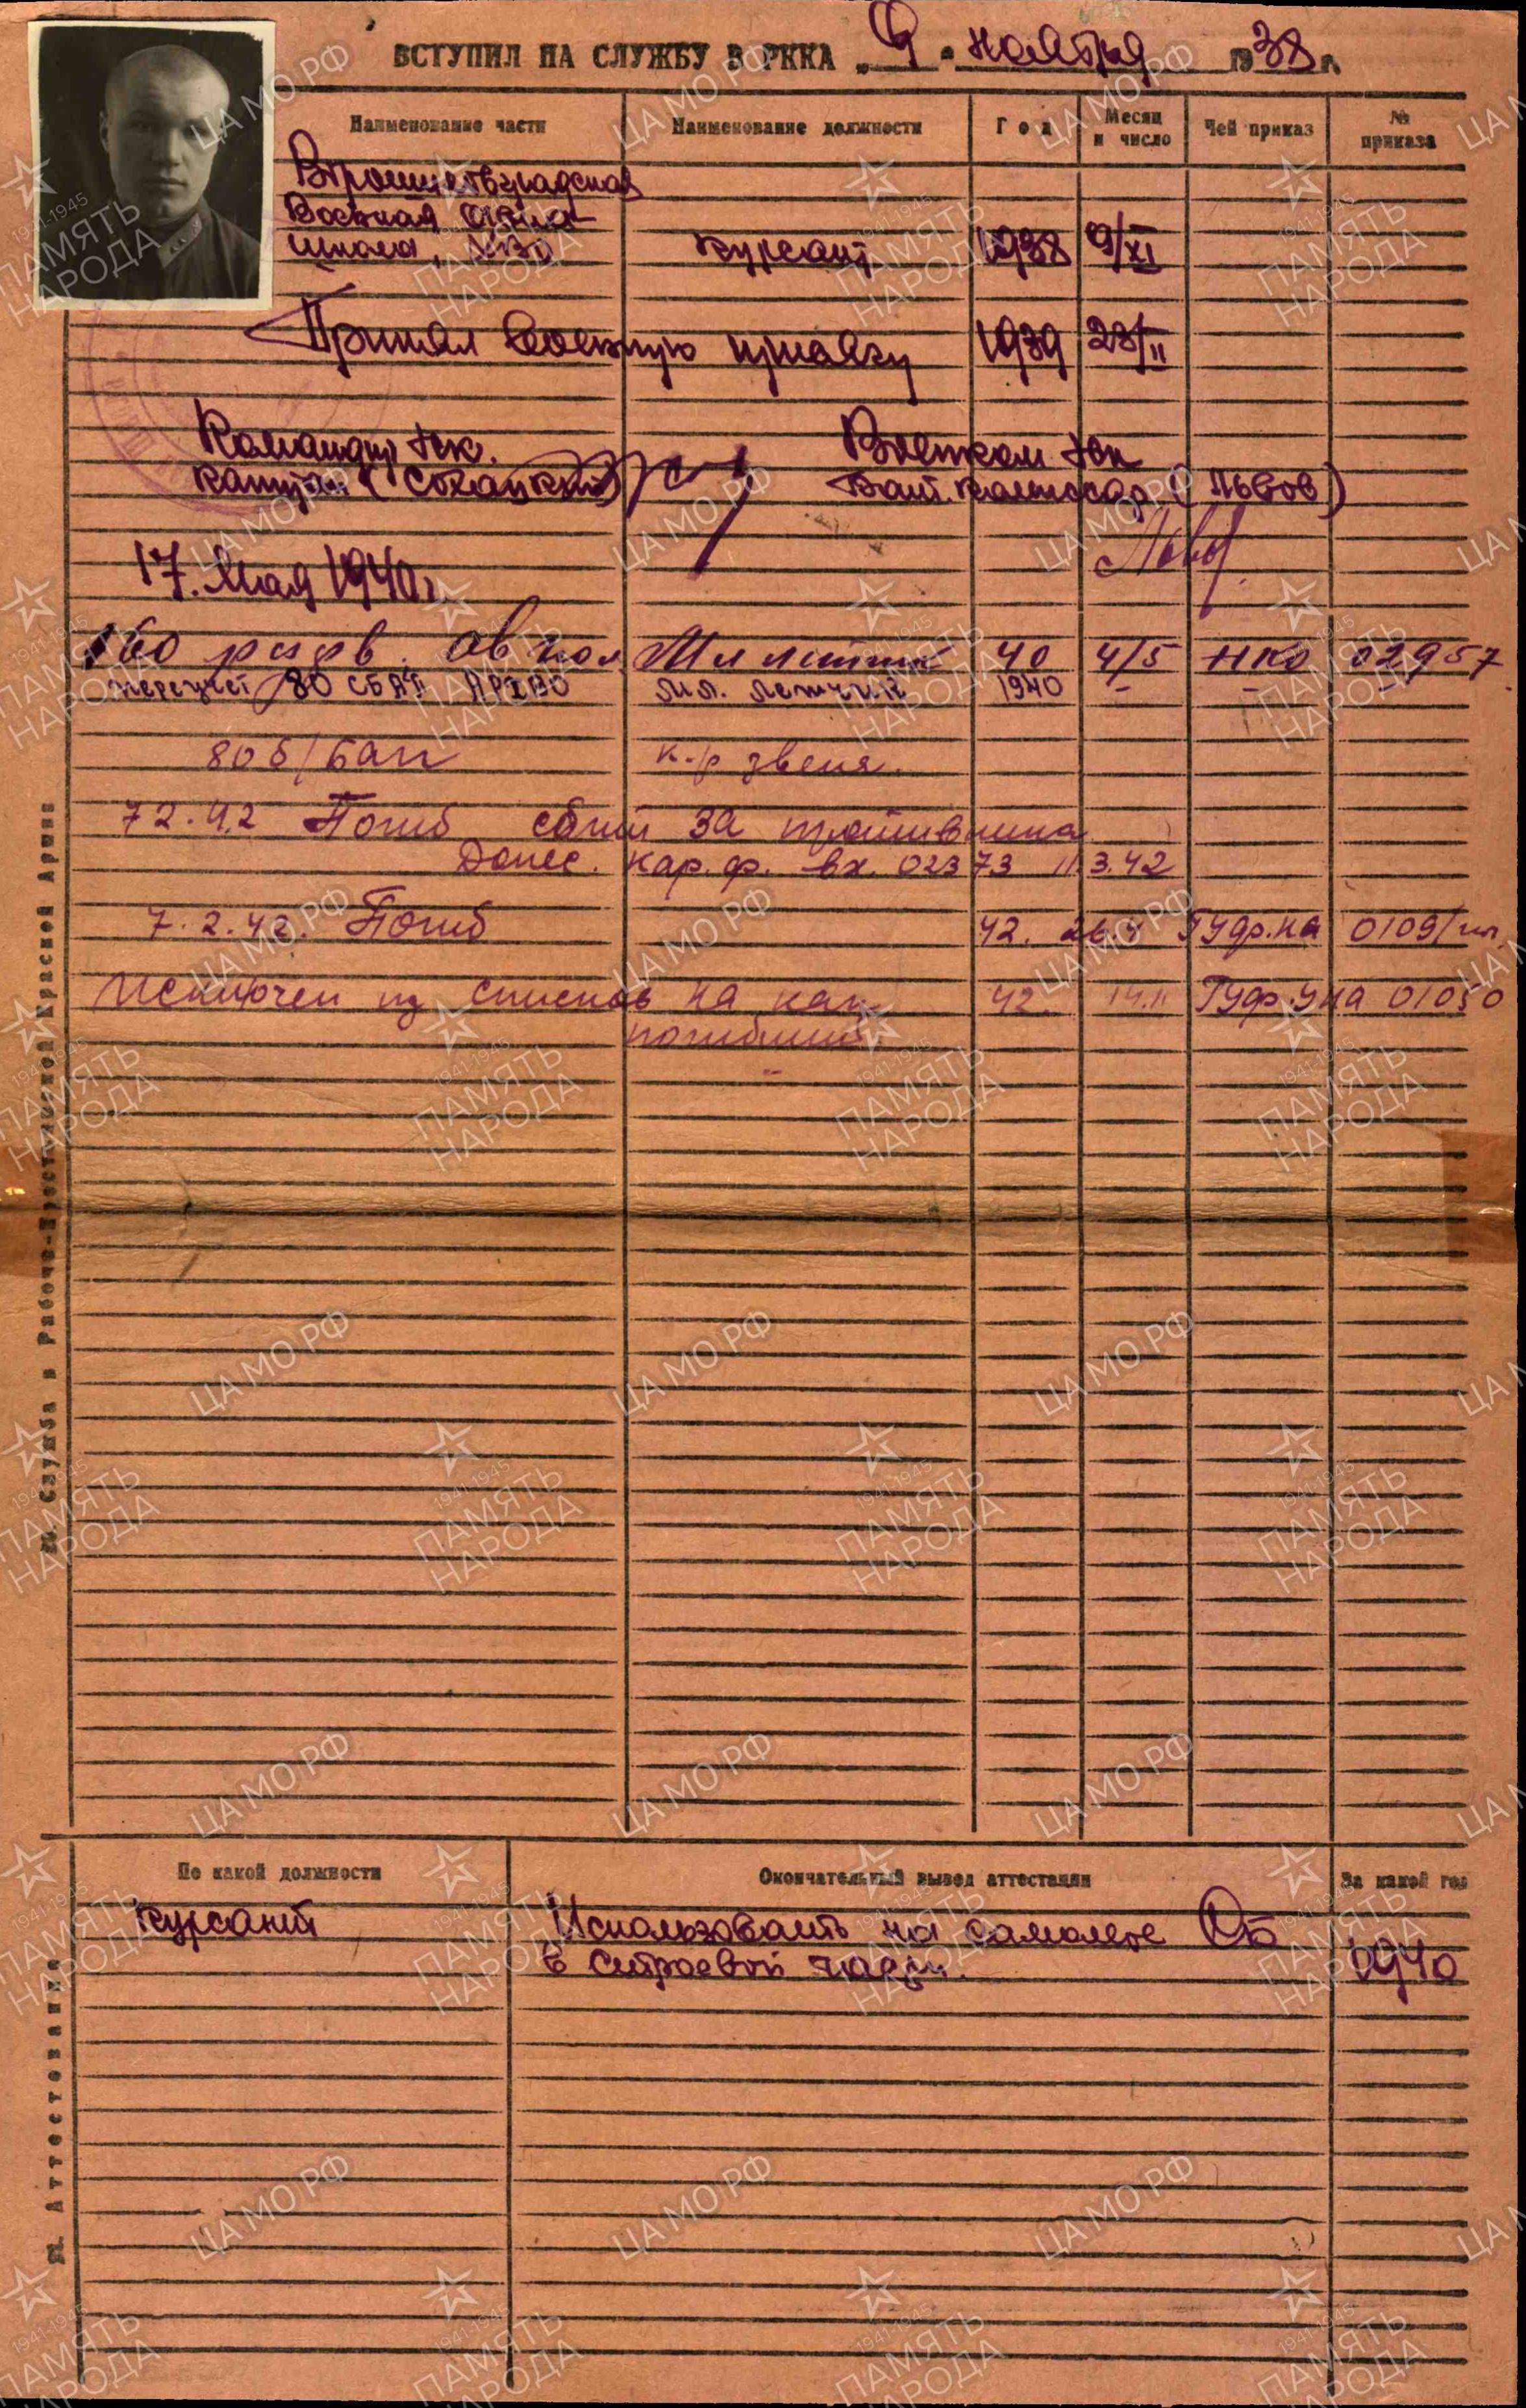 ВСТУПИЛ НА СЛУЖБУ В РККА „9“ ноября 1938 г.
Наименование части Наименование должности Год Месяц и число Чей приказ № приказа
Ворошиловградская
Военная Авиа-
школа, курсант 1938 9/XI
Принял военную присягу 1939 23/II
Командир Военком
капитан Бат. комиссар (Львов)
17. Мая 1940 г.
160 резв. ав пол Мл летчик 40 4/5 НКО 02957
80 СБАП АРХВО мл. летчик 1940 - - -
80 б/бап к-р звена.
7 2.42 Погиб сбит за противника
Донес. кар. ф. вх. 02373 11.3.42
7.2.42. Погиб 42. 26.4 0109/пог.
Исключен из списков на как 42. 14.11 01050
погибший
IV. Служба в Рабоче-Крестьянской Красной Армии
По какой должности Окончательный вывод аттестации За какой год
Курсант Использовать на самолете СБ
в строевой части. 1940
VI. Аттестование
ЦА МО РФ
1941-1945
ПАМЯТЬ
НАРОДА